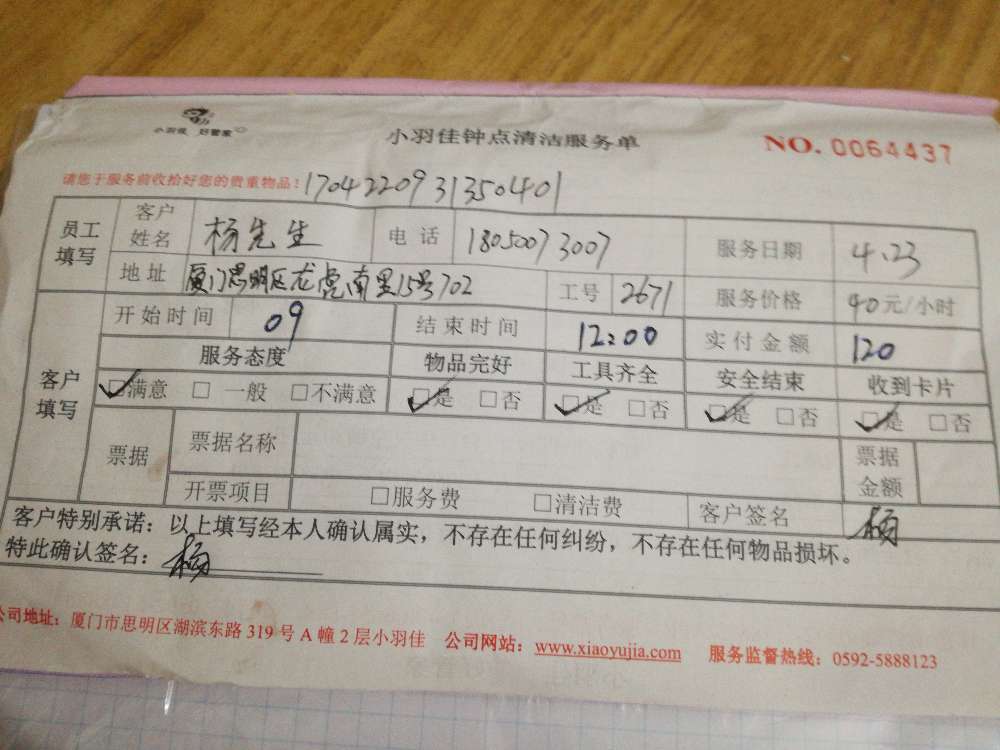 小羽佳 好管家
小羽佳钟点清洁服务单
NO. 0064437
请您于服务前收拾好您的贵重物品: 1704220931350401
员工填写 客户姓名 杨先生 电话 18050073007 服务日期 4.23
地址 厦门思明区龙虎南里15号702 工号 2671 服务价格 40元/小时
客户填写 开始时间 09 结束时间 12:00 实付金额 120
服务态度 物品完好 工具齐全 安全结束 收到卡片
☑满意 □一般 □不满意 ☑是 □否 ☑是 □否 ☑是 □否 ☑是 □否
票据 票据名称 票据金额
开票项目 □服务费 □清洁费 客户签名 杨
客户特别承诺:以上填写经本人确认属实,不存在任何纠纷,不存在任何物品损坏。
特此确认签名: 杨
公司地址:厦门市思明区湖滨东路 319 号 A 幢 2 层小羽佳 公司网站:www.xiaoyujia.com 服务监督热线:0592-5888123